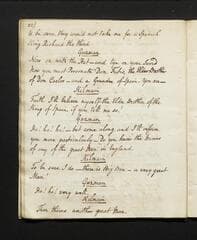 22/
to be sure they would not take me for a Spanish
King Richard the third
Gorman
Now on with the Hat—and
Now you must Personate Don Pedro, the Elder Brother
of Don Carlos—and a Grandee of Spain. You are—
Kilmain
Faith I'll believe myself the elder Brother of the
King of Spain if you tell me so.
Gorman
He! he! he!—but come along and I'll inform
you more particularly—Do you know the Names
of any of the great Men in England.
Kilmain
To be sure I do—there is
— a very great
Man.
Gorman
He! he! very well
Kilmain
Then there's another great Man.